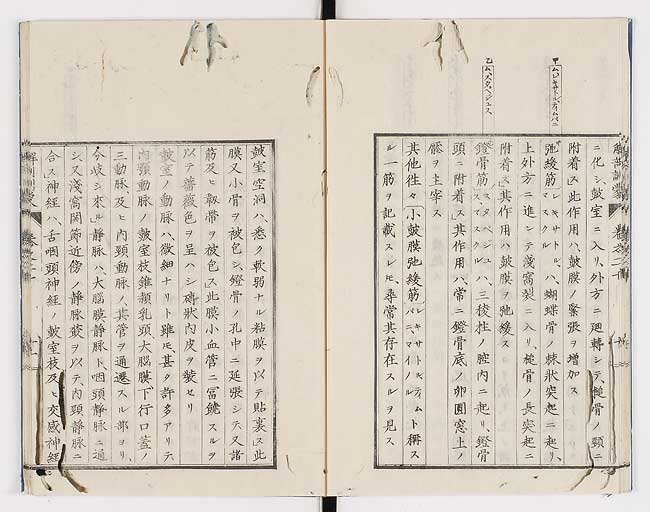 甲ムレキサトルティムパニ
乙ムスタペジュス
ニ化シ鼓室ニ入リ、外方ニ廻轉シテ、槌骨ノ頸ニ
附着ス此作用ハ、鼓膜ノ緊張ヲ増加ス
弛緩筋レキサトル、マスクルハ、蝴蝶骨ノ棘狀突起ニ起リ、
上外方ニ進シテ、茂窩裂ニ入リ、槌骨ノ長突起ニ
附着ス其作用ハ、鼓膜ヲ弛緩ス
鐙骨筋スタペジュスマスクルハ、三稜柱ノ腔内ニ起リ、鐙骨
頭ニ附着ス其作用ハ、常ニ鐙骨底ノ卵圓窓上ノ
ヲ主宰ス
其他往々小鼓膜弛緩筋レキサトルティムパニマイノルト稱ス
ル一筋ヲ記載スレ𪜈、尋常其存在スルヲ見ス
鼓室空洞ハ、悉ク軟弱ナル粘膜ヲ以テ貼裹ス此
膜又小骨ヲ被包シ、鐙骨ノ孔中ニ延張シテ又諸
筋及ヒ靱帶ヲ被包ス此膜小血管ニ富饒スルヲ
以テ薔薇色ヲ呈ハシ磚狀内皮ヲ襲セリ
鼓室ノ動脉ハ、微細ナリト雖𪜈甚タ許多アリテ、
内顎動脉ノ鼓室枝錐顙乳頭大腦膜下行口蓋ノ
三動脉及ヒ内頸動脉ノ其管ヲ通過スル部ヨリ、
分岐シ來ル靜脉ハ、大腦膜靜脉ト咽頭靜脉ニ通
シ又淺窩關節近傍ノ靜脉叢ヲ以テ内頸靜脉ニ
合ス神經ハ、舌咽頭神經ノ鼓室枝及ヒ交感神經